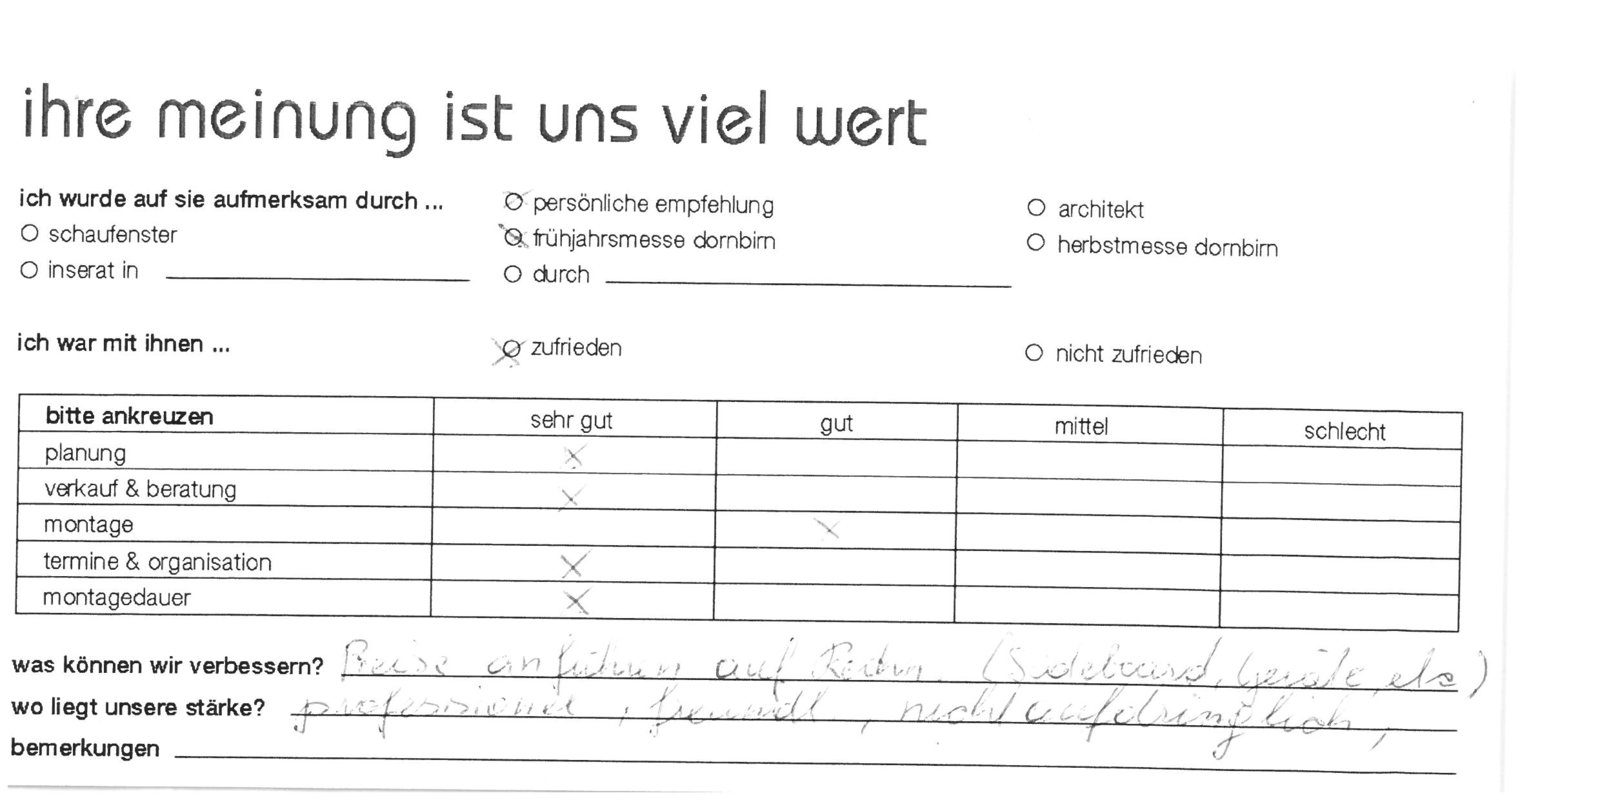 ihre meinung ist uns viel wert
ich wurde auf sie aufmerksam durch ... persönliche empfehlung architekt
schaufenster frühjahrsmesse dornbirn herbstmesse dornbirn
inserat in durch
ich war mit ihnen ... zufrieden nicht zufrieden
bitte ankreuzen sehr gut gut mittel schlecht
planung x
verkauf & beratung x
montage x
termine & organisation x
montagedauer x
was können wir verbessern? Preise anführen auf Rechn. (Sideboard, Geräte, etc)
wo liegt unsere stärke? professionell, freundl, nicht aufdringlich,
bemerkungen